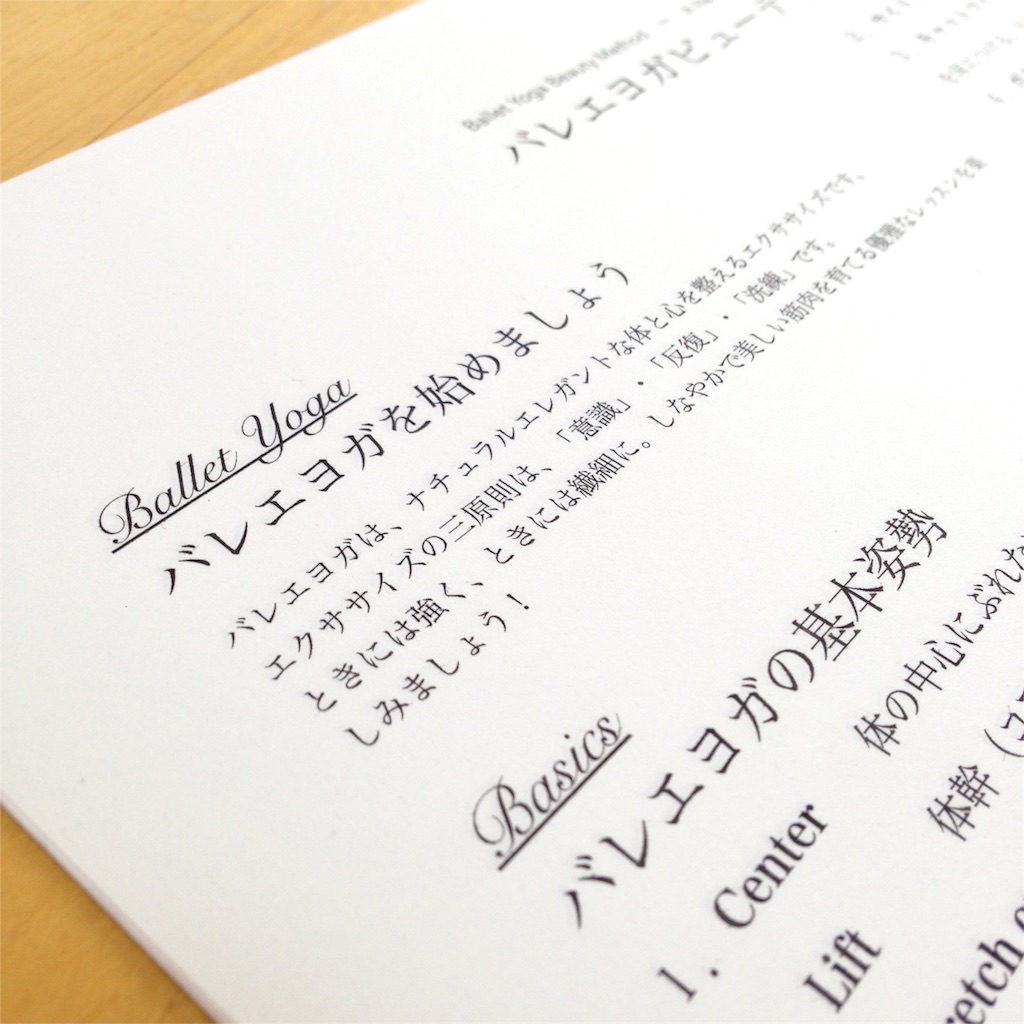 Ballet Yoga Beauty Method
バレエヨガビューテ
2. サイド
3.
4.
Ballet Yoga
バレエヨガを始めましょう
バレエヨガは、ナチュラルエレガントな体と心を整えるエクササイズです。
エクササイズの三原則は、「意識」・「反復」・「洗練」です。
ときには強く、ときには繊細に。しなやかで美しい筋肉を育てる優雅なレッスンを楽
しみましょう!
Basics
バレエヨガの基本姿勢
1. Center
体の中心にぶれな
Lift
体幹(コ